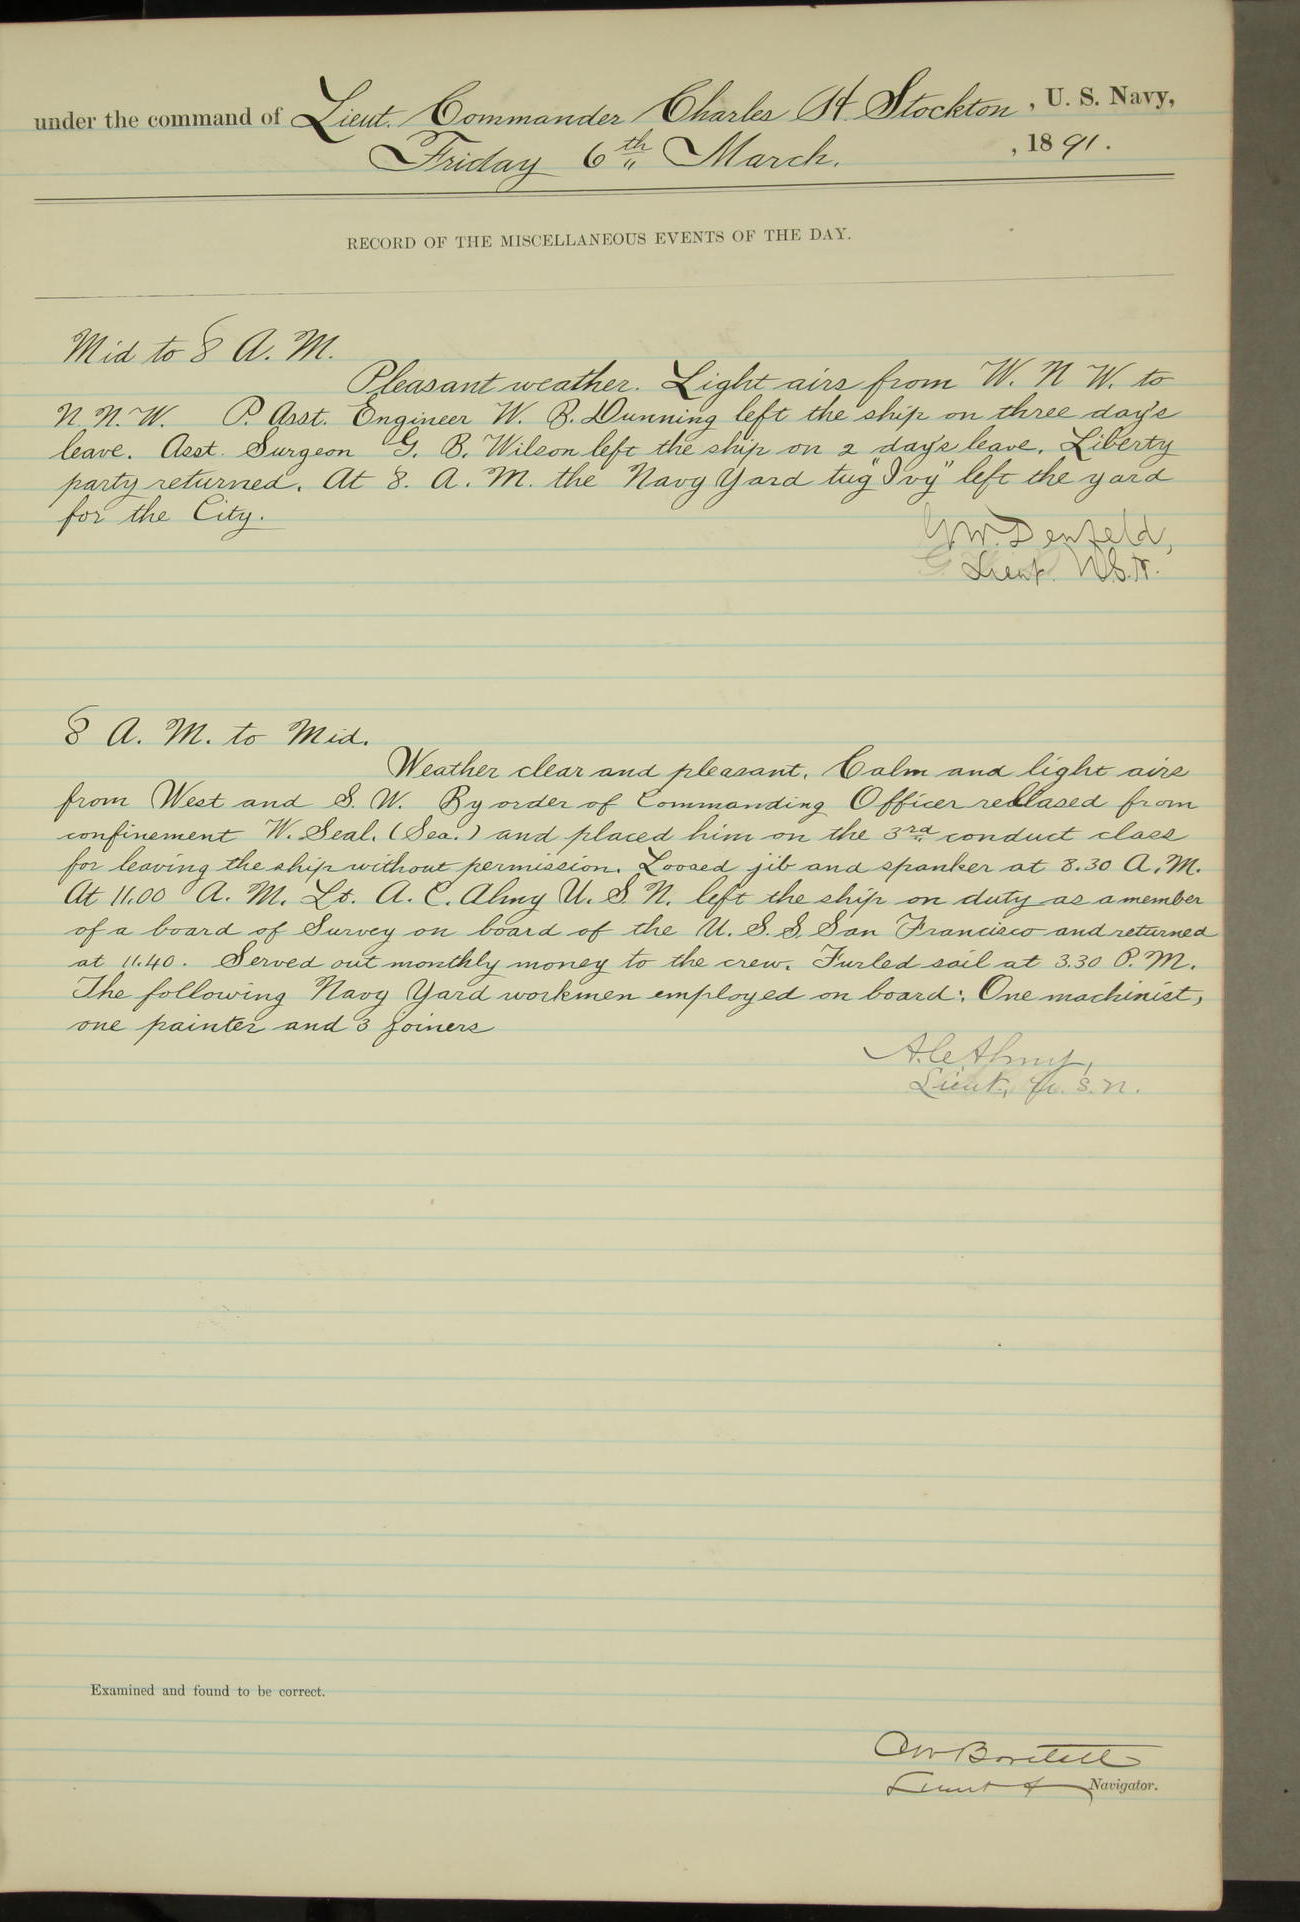 under the command of Lieut. Commander Charles H. Stockton, U. S. Navy,
Friday 6th March. , 1891.
RECORD OF THE MISCELLANEOUS EVENTS OF THE DAY.
Mid to 8 A. M.
Pleasant weather. Light airs from W. N. W. to
N. N. W. P. Asst. Engineer W. B. Dunning left the ship on three day's
leave. Asst. Surgeon G. B. Wilson left the ship on 2 day's leave. Liberty
party returned. At 8. A. M. the Navy Yard tug "Ivy" left the yard
for the City.
G. W. Denfeld,
Lieut. U.S.N.
8 A. M. to Mid.
Weather clear and pleasant. Calm and light airs
from West and S. W. By order of Commanding Officer released from
confinement W. Seal. (Sea.) and placed him on the 3rd conduct class
for leaving the ship without permission. Loosed jib and spanker at 8.30 A. M.
At 11.00 A. M. Lt. A. C. Almy U. S. N. left the ship on duty as a member
of a board of Survey on board of the U. S. S. San Francisco and returned
at 11.40. Served out monthly money to the crew. Furled sail at 3.30 P. M.
The following Navy Yard workmen employed on board: One machinist,
one painter and 3 joiners
A. C. Almy,
Lieut, U. S. N.
Examined and found to be correct.
Bartlett
Lieut & Navigator.